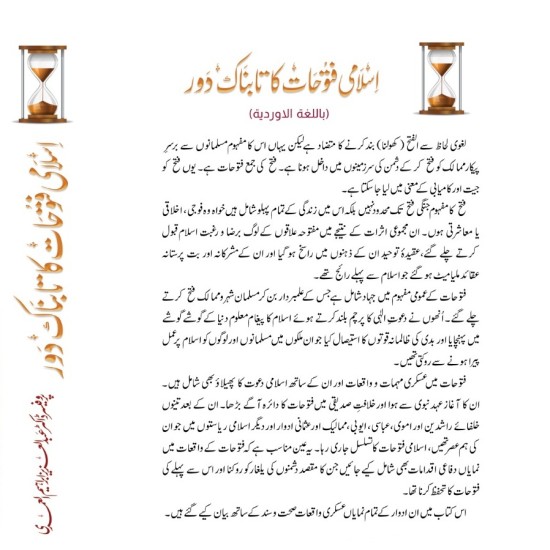 اسلامی فتوحات کا تابناک دور
(باللغة الاوردية)
لغوی لحاظ سے الفتح (کھولنا) بند کرنے کا متضاد ہے لیکن یہاں اس کا مفہوم مسلمانوں سے برسرِ
پیکار ممالک کو فتح کر کے دشمن کی سرزمینوں میں داخل ہونا ہے۔ فتح کی جمع فتوحات ہے۔ یوں فتح کو
جیت اور کامیابی کے معنی میں لیا جاسکتا ہے۔
فتح کا مفہوم جنگی فتح تک محدود نہیں بلکہ اس میں زندگی کے تمام پہلو شامل ہیں خواہ وہ فوجی، اخلاقی
یا معاشرتی ہوں۔ ان مجموعی اثرات کے نتیجے میں مفتوحہ علاقوں کے لوگ برضا و رغبت اسلام قبول
کرتے چلے گئے، عقیدۂ توحید ان کے ذہنوں میں راسخ ہو گیا اور ان کے مشرکانہ اور بت پرستانہ
عقائد ملیامیٹ ہو گئے جو اسلام سے پہلے رائج تھے۔
فتوحات کے عمومی مفہوم میں جہاد شامل ہے جس کے علمبردار بن کر مسلمان شہر و ممالک فتح کرتے
چلے گئے۔ اُنھوں نے دعوتِ الٰہی کا پرچم بلند کرتے ہوئے اسلام کا پیغام معلوم دنیا کے گوشے گوشے
میں پہنچایا اور بدی کی ظالمانہ قوتوں کا استیصال کیا جو ان ملکوں میں مسلمانوں اور لوگوں کو اسلام پر عمل
پیرا ہونے سے روکتی تھیں۔
فتوحات میں عسکری مہمات و واقعات اور ان کے ساتھ اسلامی دعوت کا پھیلاؤ بھی شامل ہیں۔
ان کا آغاز عہدِ نبوی سے ہوا اور خلافتِ صدیقی میں فتوحات کا دائرہ آگے بڑھا۔ ان کے بعد تینوں
خلفائے راشدین اور اموی، عباسی، ایوبی، ممالیک اور عثمانی ادوار اور دیگر اسلامی ریاستوں میں جو ان
کی ہم عصر تھیں، اسلامی فتوحات کا تسلسل جاری رہا۔ یہ عین مناسب ہے کہ فتوحات کے واقعات میں
نمایاں دفاعی اقدامات بھی شامل کیے جائیں جن کا مقصد دشمنوں کی یلغار کو روکنا اور اس سے پہلے کی
فتوحات کا تحفظ کرنا تھا۔
اس کتاب میں ان ادوار کے تمام نمایاں عسکری واقعات صحت و سند کے ساتھ بیان کیے گئے ہیں۔
اسلامی فتوحات کا تابناک دور
پروفیسر ڈاکٹر عبدالعزیز ابراہیم العمری